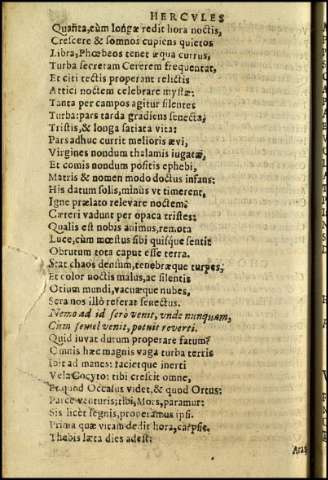 HERCVLES
Quanta, cùm longæ redit hora noctis,
Crescere & somnos cupiens quietos
Libra, Phœbeos tenet æqua currus,
Turba secretam Cererem frequentat,
Et citi tectis properant relictis
Attici noctem celebrare mystæ:
Tanta per campos agitur silentes
Turba: pars tarda gradiens senecta,
Tristis, & longa satiata vita:
Pars adhuc currit melioris ævi,
Virgines nondum thalamis iugatæ,
Et comis nondum positis ephebi,
Matris & nomen modò doctus infans:
His datum solis, minùs vt timerent,
Igne prælato relevare noctem.
Cæteri vadunt per opaca tristes:
Qualis est nobis animus, remota
Luce, cùm mœstus sibi quisque sentit
Obrutum tota caput esse terra.
Stat chaos densum, tenebræque turpes,
Et color noctis malus, ac silentis
Otium mundi, vacuæque nubes,
Sera nos illò referat senectus.
Nemo ad id serò venit, vnde nunquam,
Cùm semel venit, potuit reverti.
Quid iuvat durum properare fatum?
Omnis hæc magnis vaga turba terris
Ibit ad manes: facietque inerti
Vela Cocyto: tibi crescit omne,
Et quod Occasus videt, & quod Ortus:
Parce venturis: tibi, Mors, paramur:
Sis licèt segnis, properamus ipsi.
Prima quæ vitam dedit hora, carpsit.
Thebis læta dies adest: